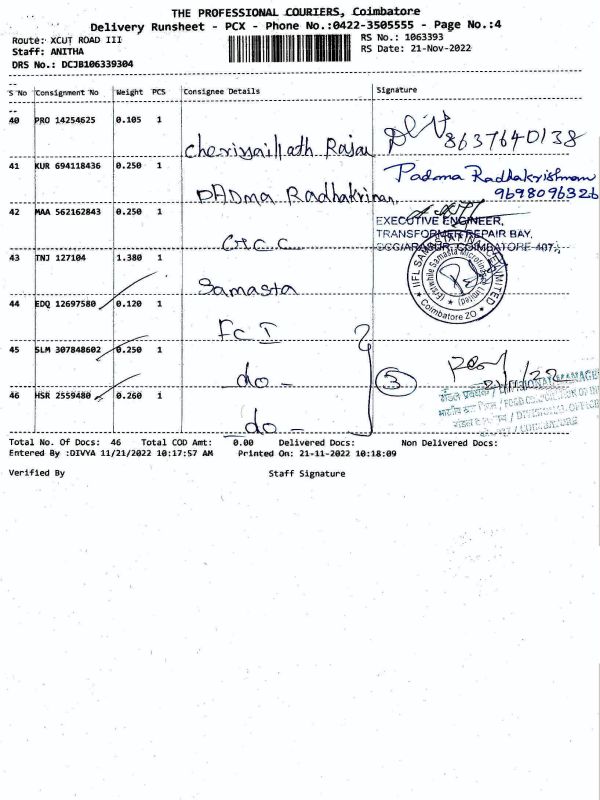 THE PROFESSIONAL COURIERS, Coimbatore
Delivery Runsheet - PCX - Phone No.:0422-3505555 - Page No.:4
Route: XCUT ROAD III RS No.: 1063393
Staff: ANITHA RS Date: 21-Nov-2022
DRS No.: DCJB106339304
S No Consignment No Weight PCS Consignee Details Signature
40 PRO 14254625 0.105 1
8637640138
41 KUR 694118436 0.250 1 Padma Radhakrishnan
9698096326
PADma Radhakrinan
42 MAA 562162843 0.250 1
EXECUTIVE ENGINEER,
TRANSFORMER REPAIR BAY,
COIMBATORE
43 TNJ 127104 1.380 1
IIFL SAMASTA LIMITED
(Erstwhile Samasta Microfinance Limited)
Coimbatore ZO
Samasta
44 EDQ 12697580 0.120 1
FCI
45 SLM 307848602 0.250 1
do -
5
46 HSR 2559480 0.260 1
do -
Total No. Of Docs: 46 Total COD Amt: 0.00 Delivered Docs: Non Delivered Docs:
Entered By :DIVYA 11/21/2022 10:17:57 AM Printed On: 21-11-2022 10:18:09
Verified By Staff Signature